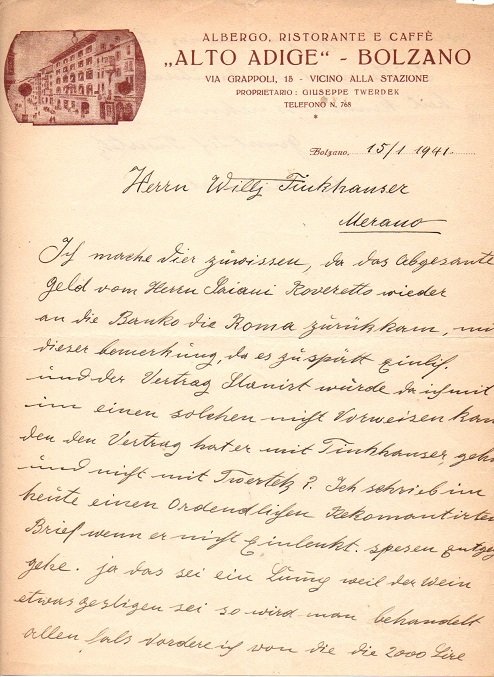 ALBERGO, RISTORANTE E CAFFÈ
„ALTO ADIGE“ - BOLZANO
VIA GRAPPOLI, 15 - VICINO ALLA STAZIONE
PROPRIETARIO: GIUSEPPE TWERDEK
TELEFONO N. 768
Bolzano, 15/1 1941.
Herrn Willj Tinkhauser
Merano
Ich mache Dier zuwissen, da das Abgesante
Geld vom Herrn Roveretto wieder
an die Banko die Roma zurükkam, mit
dieser bemerkung, da es zu spätt Einlif.
und der Vertrag würde da ich mit
im einen solchen nicht Vorweisen kan
den den Vertrag hat er mit Tinkhauser, geh
und nicht mit Twertek? Ich schrieb im
heute einen Ordendlichen Rekomantirten
Brief wenn er nicht Einlenkt. spesen entgeg
gehe. ja das sei ein weil der Wein
etwas gestigen sei so wird man behandelt
allen fals Vordere ich von die die 2000 Lire